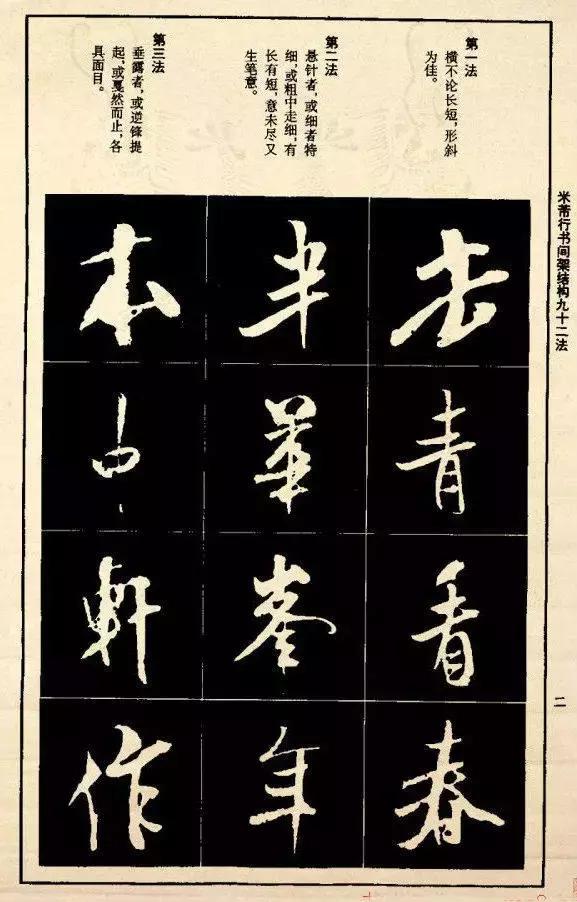 米芾行书间架结构九十二法
二
第一法
横不论长短,形斜
为佳。
去青看春
第二法
悬针者,或细者特
细,或粗中走细,有
长有短,意未尽又
生笔意。
半華峯年
第三法
垂露者,或逆锋提
起,或戛然而止,各
具面目。
本中軒作